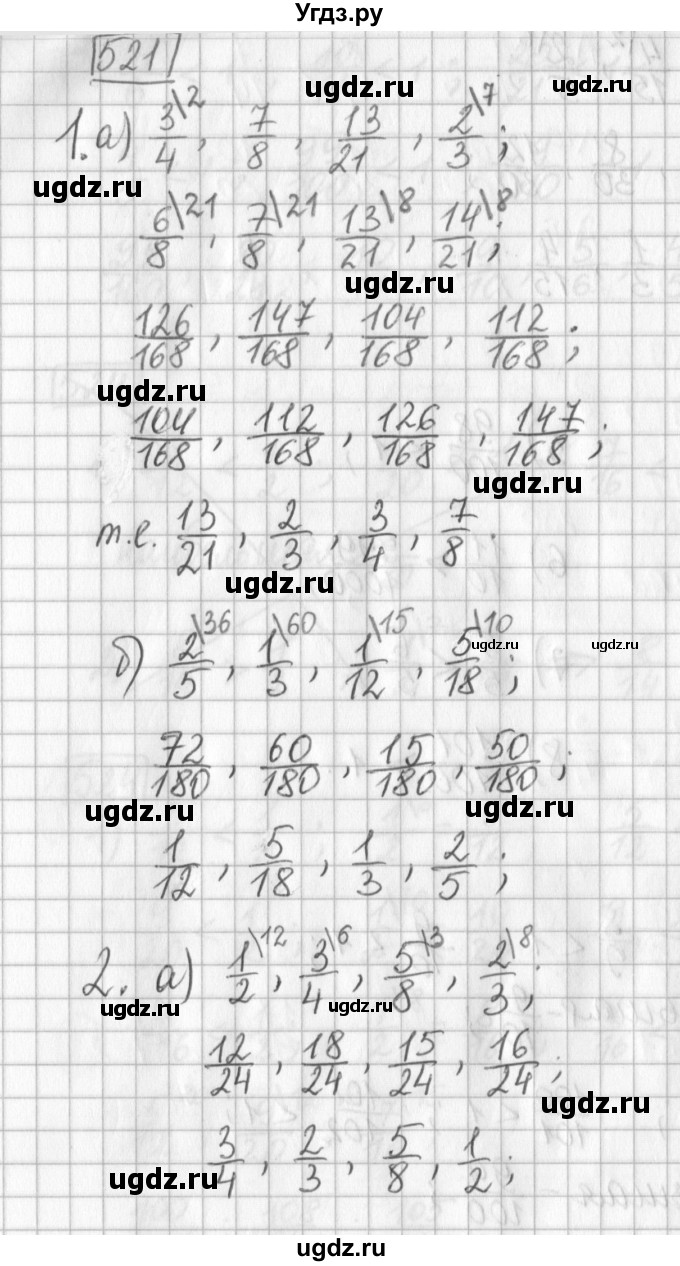 Угдз.ру
521
ugdz.ru ugdz.ru
1. а) 3/4\2, 7/8, 13/21, 2/3\7;
ugdz.ru
6/8\21, 7/8\21, 13/21\8, 14/21\8;
ugdz.ru
126/168, 147/168, 104/168, 112/168;
ugdz.ru
104/168, 112/168, 126/168, 147/168;
ugdz.ru
т.е. 13/21, 2/3, 3/4, 7/8.
ugdz.ru
б) 2/5\36, 1/3\60, 1/12\15, 5/18\10;
ugdz.ru ugdz.ru
72/180, 60/180, 15/180, 50/180;
ugdz.ru ugdz.ru
1/12, 5/18, 1/3, 2/5;
2. а) 1/2\12, 3/4\6, 5/8\3, 2/3\8;
ugdz.ru ugdz.ru
12/24, 18/24, 15/24, 16/24;
ugdz.ru
3/4, 2/3, 5/8, 1/2;
ugdz.ru
ugdz.ru